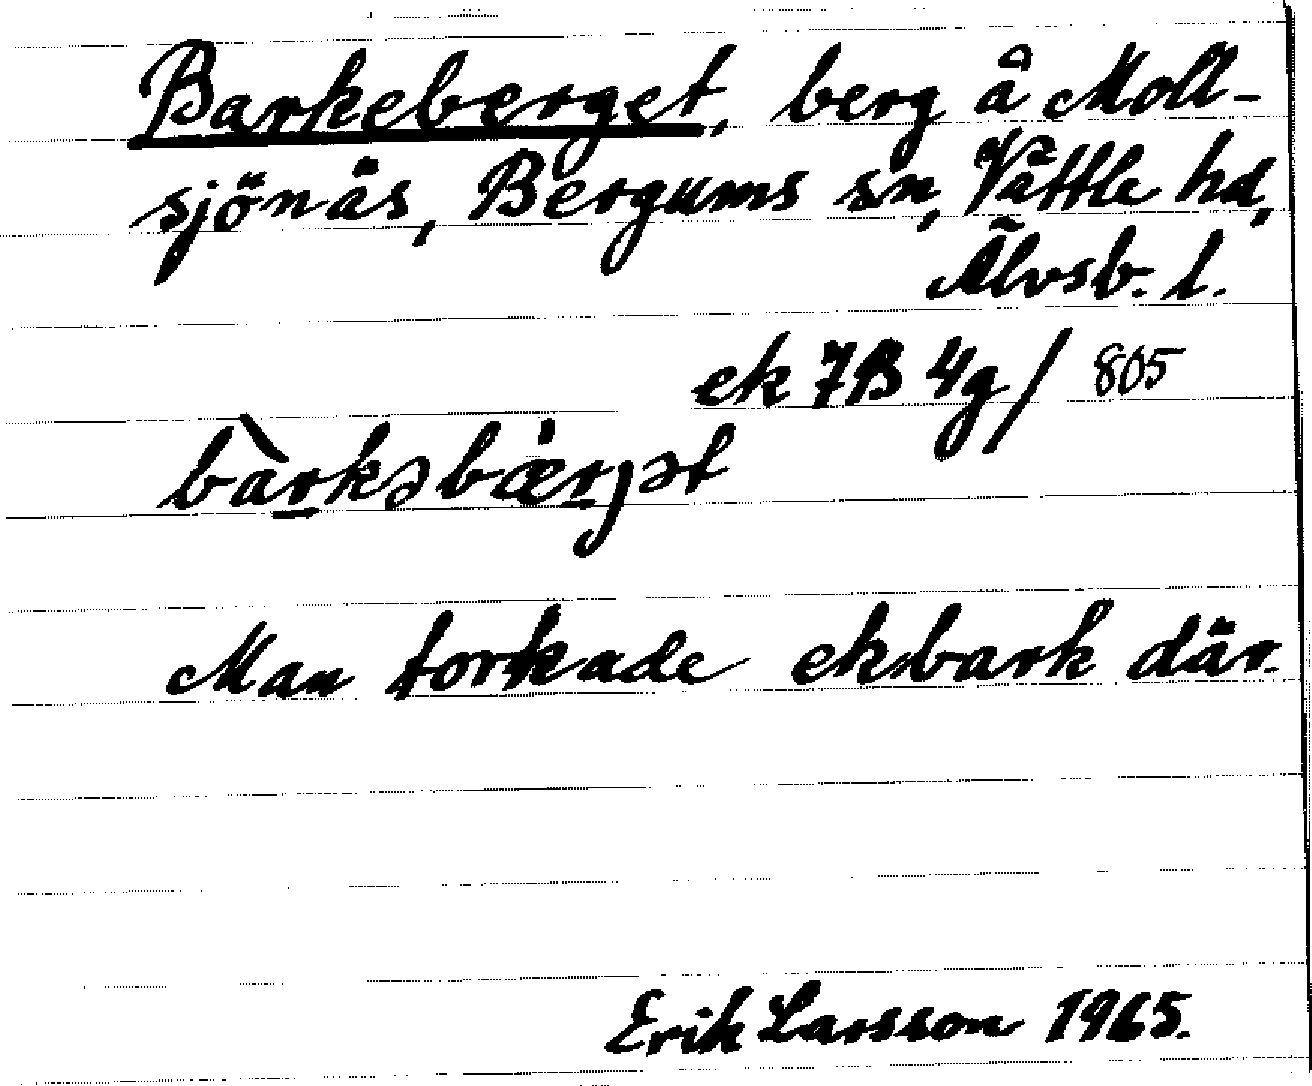 Barkeberget, berg å Moll-
sjönäs, Bergums sn, Vättle hd,
Älvsb. l.
ek 7B 4g/ 805
bàrkəbæ̇rjət
Man torkade ekbark där.
Erik Larsson 1965.